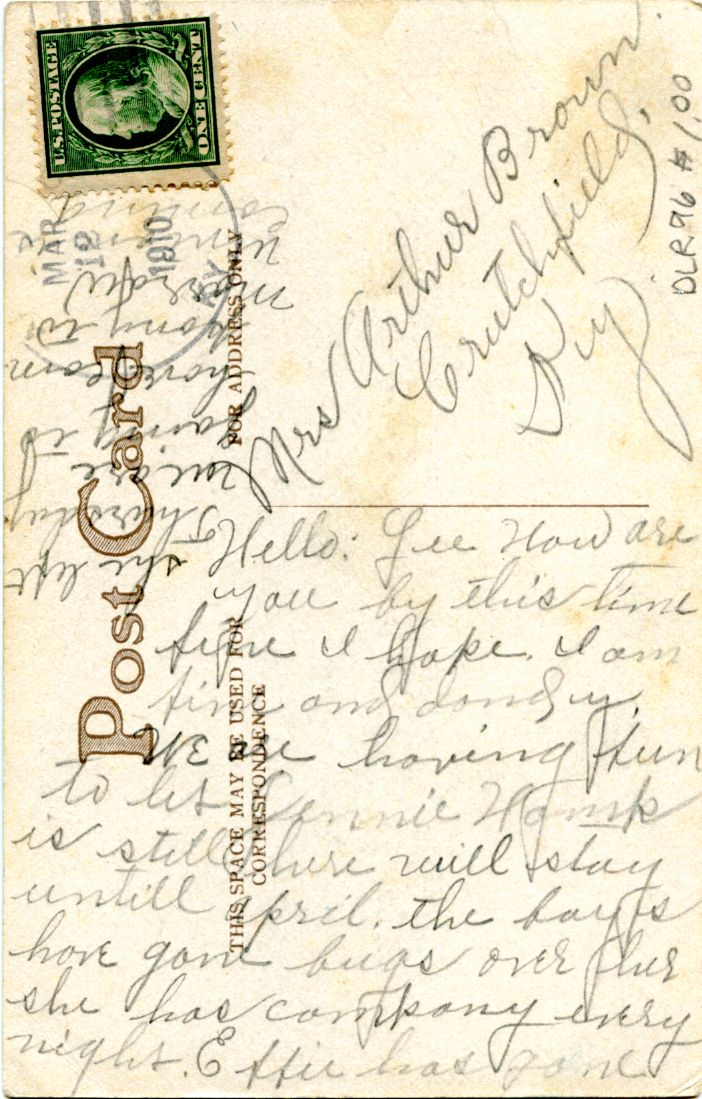 U.S. POSTAGE
ONE CENT
MAR
12
1910
KY
DLR96 # 1.00
Post Card
FOR ADDRESS ONLY
THIS SPACE MAY BE USED FOR
CORRESPONDENCE
Mrs Arthur Brown.
Crutchfield,
Ky
Hello: Gee How are
you by this time
fine I hope. I am
fine and dandy.
WE are having fun
to let Lennie
is still here will stay
untill April. the boys
have gone bugs over her
she has company every
night. Effie has gone
she left
Thursday
we are
going to
have com
pony to
morrow